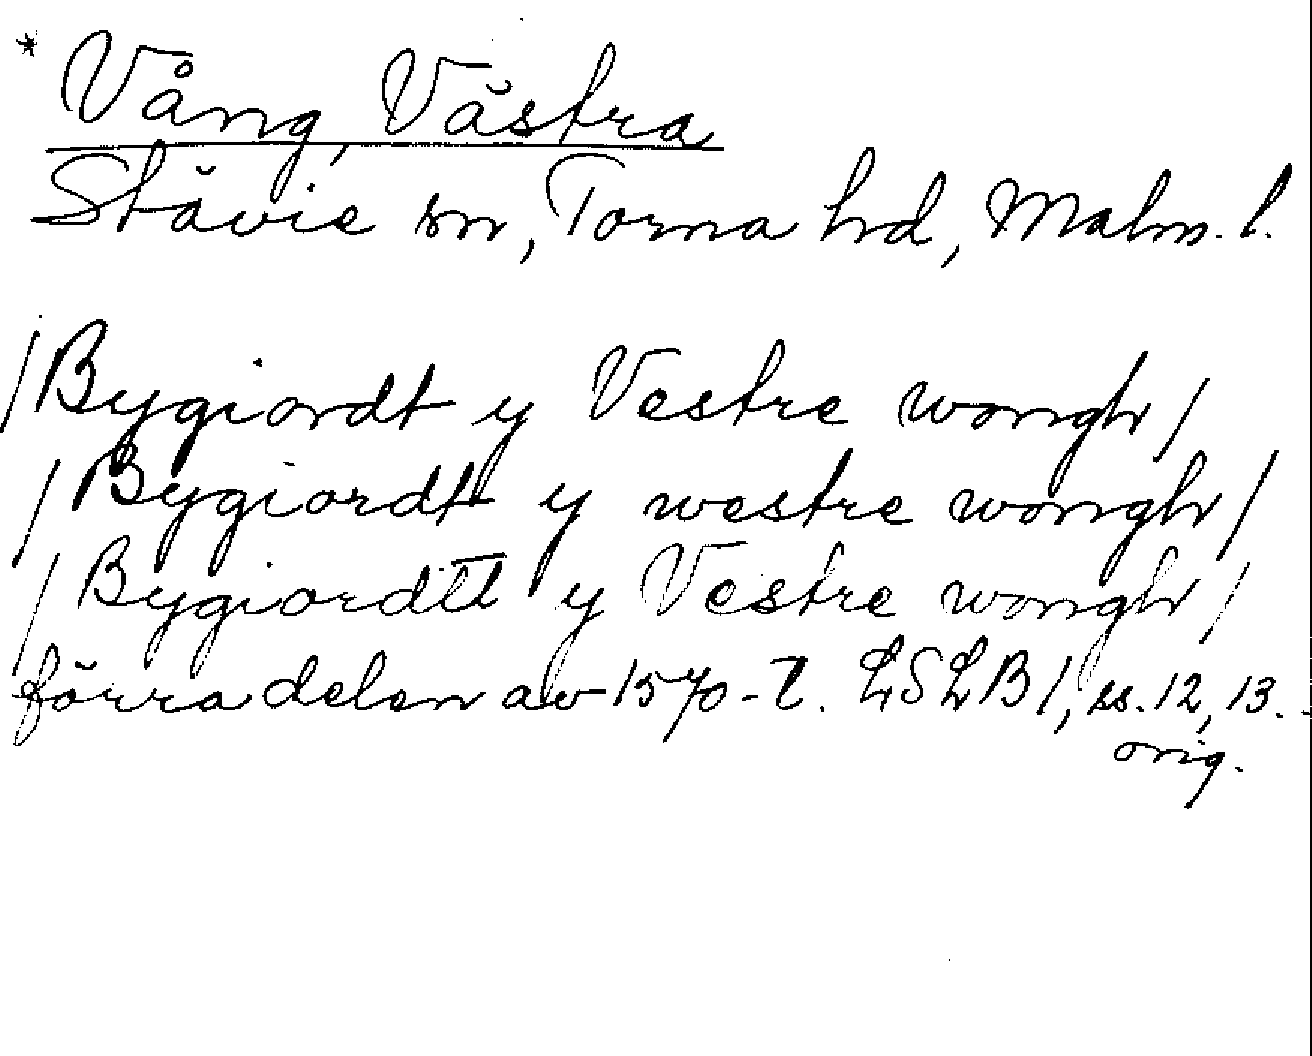 * Vång, Västra
Stävie sn, Torna hd, Malm. l.
/Bygiordt y Vestre wongh/
/Bygiordt y westre wongh/
/Bygiordtt y Vestre wongh/
förra delen av 1570-t. LSLB 1, ss. 12, 13.
orig.